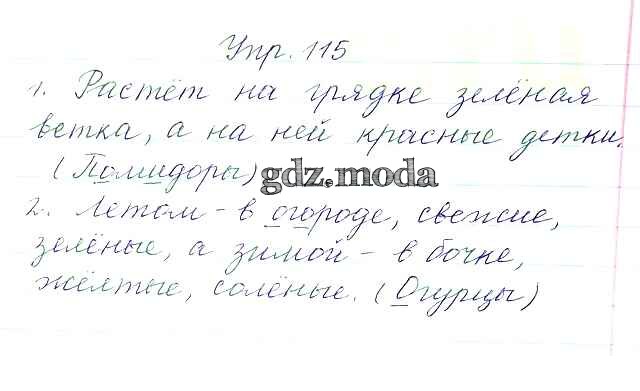 Упр. 115
1. Растёт на грядке зелёная
ветка, а на ней красные детки.
(Помидоры) gdz.moda
2. Летом - в огороде, свежие,
зелёные, а зимой - в бочке,
жёлтые, солёные. (Огурцы)